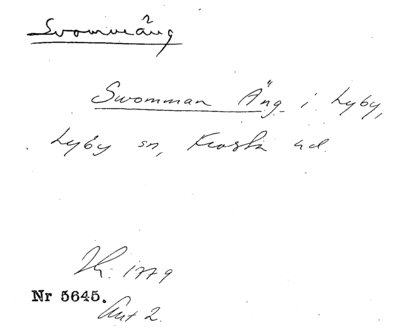 Svommeäng
Swomman Äng i Lyby,
Lyby sn, Frosta hd
Lh. 1779
Nr 5645.
Akt 2.